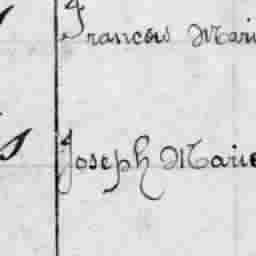 Francois Mari
s Joseph Marie